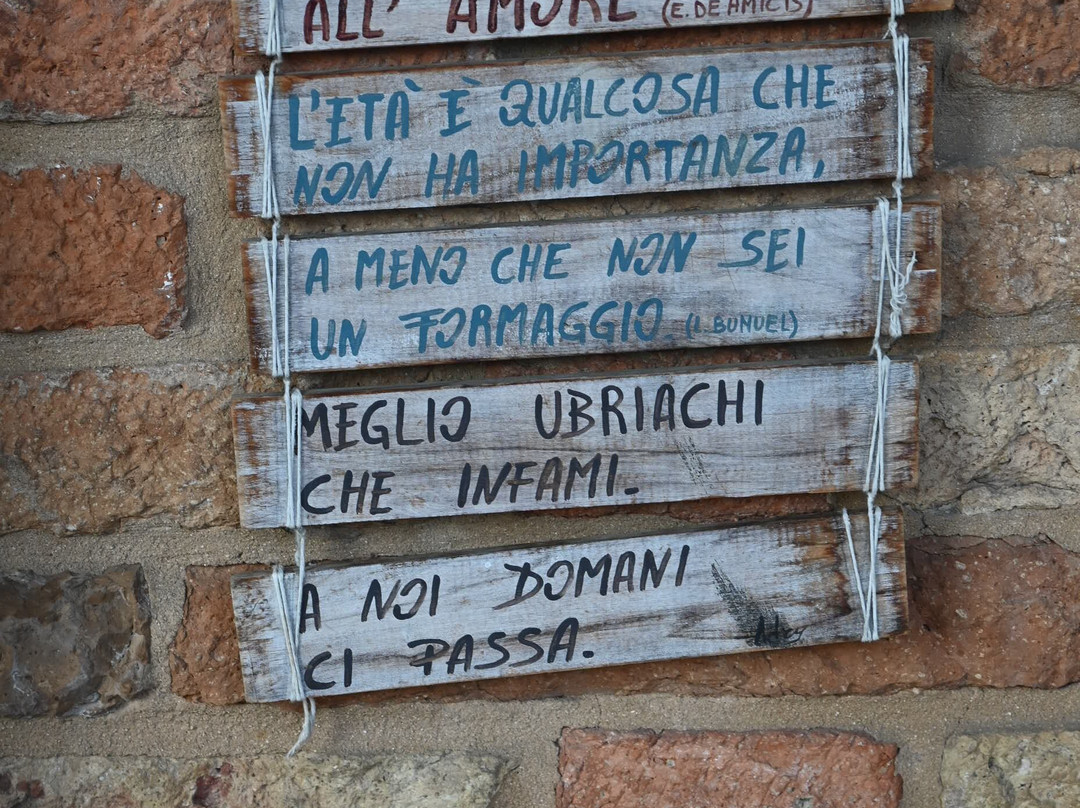 ALL' AMORE (E. DE AMICIS)
L'ETÀ È QUALCOSA CHE
NON HA IMPORTANZA,
A MENO CHE NON SEI
UN FORMAGGIO. (L. BUNUEL)
MEGLIO UBRIACHI
CHE INFAMI.
A NOI DOMANI
CI PASSA.